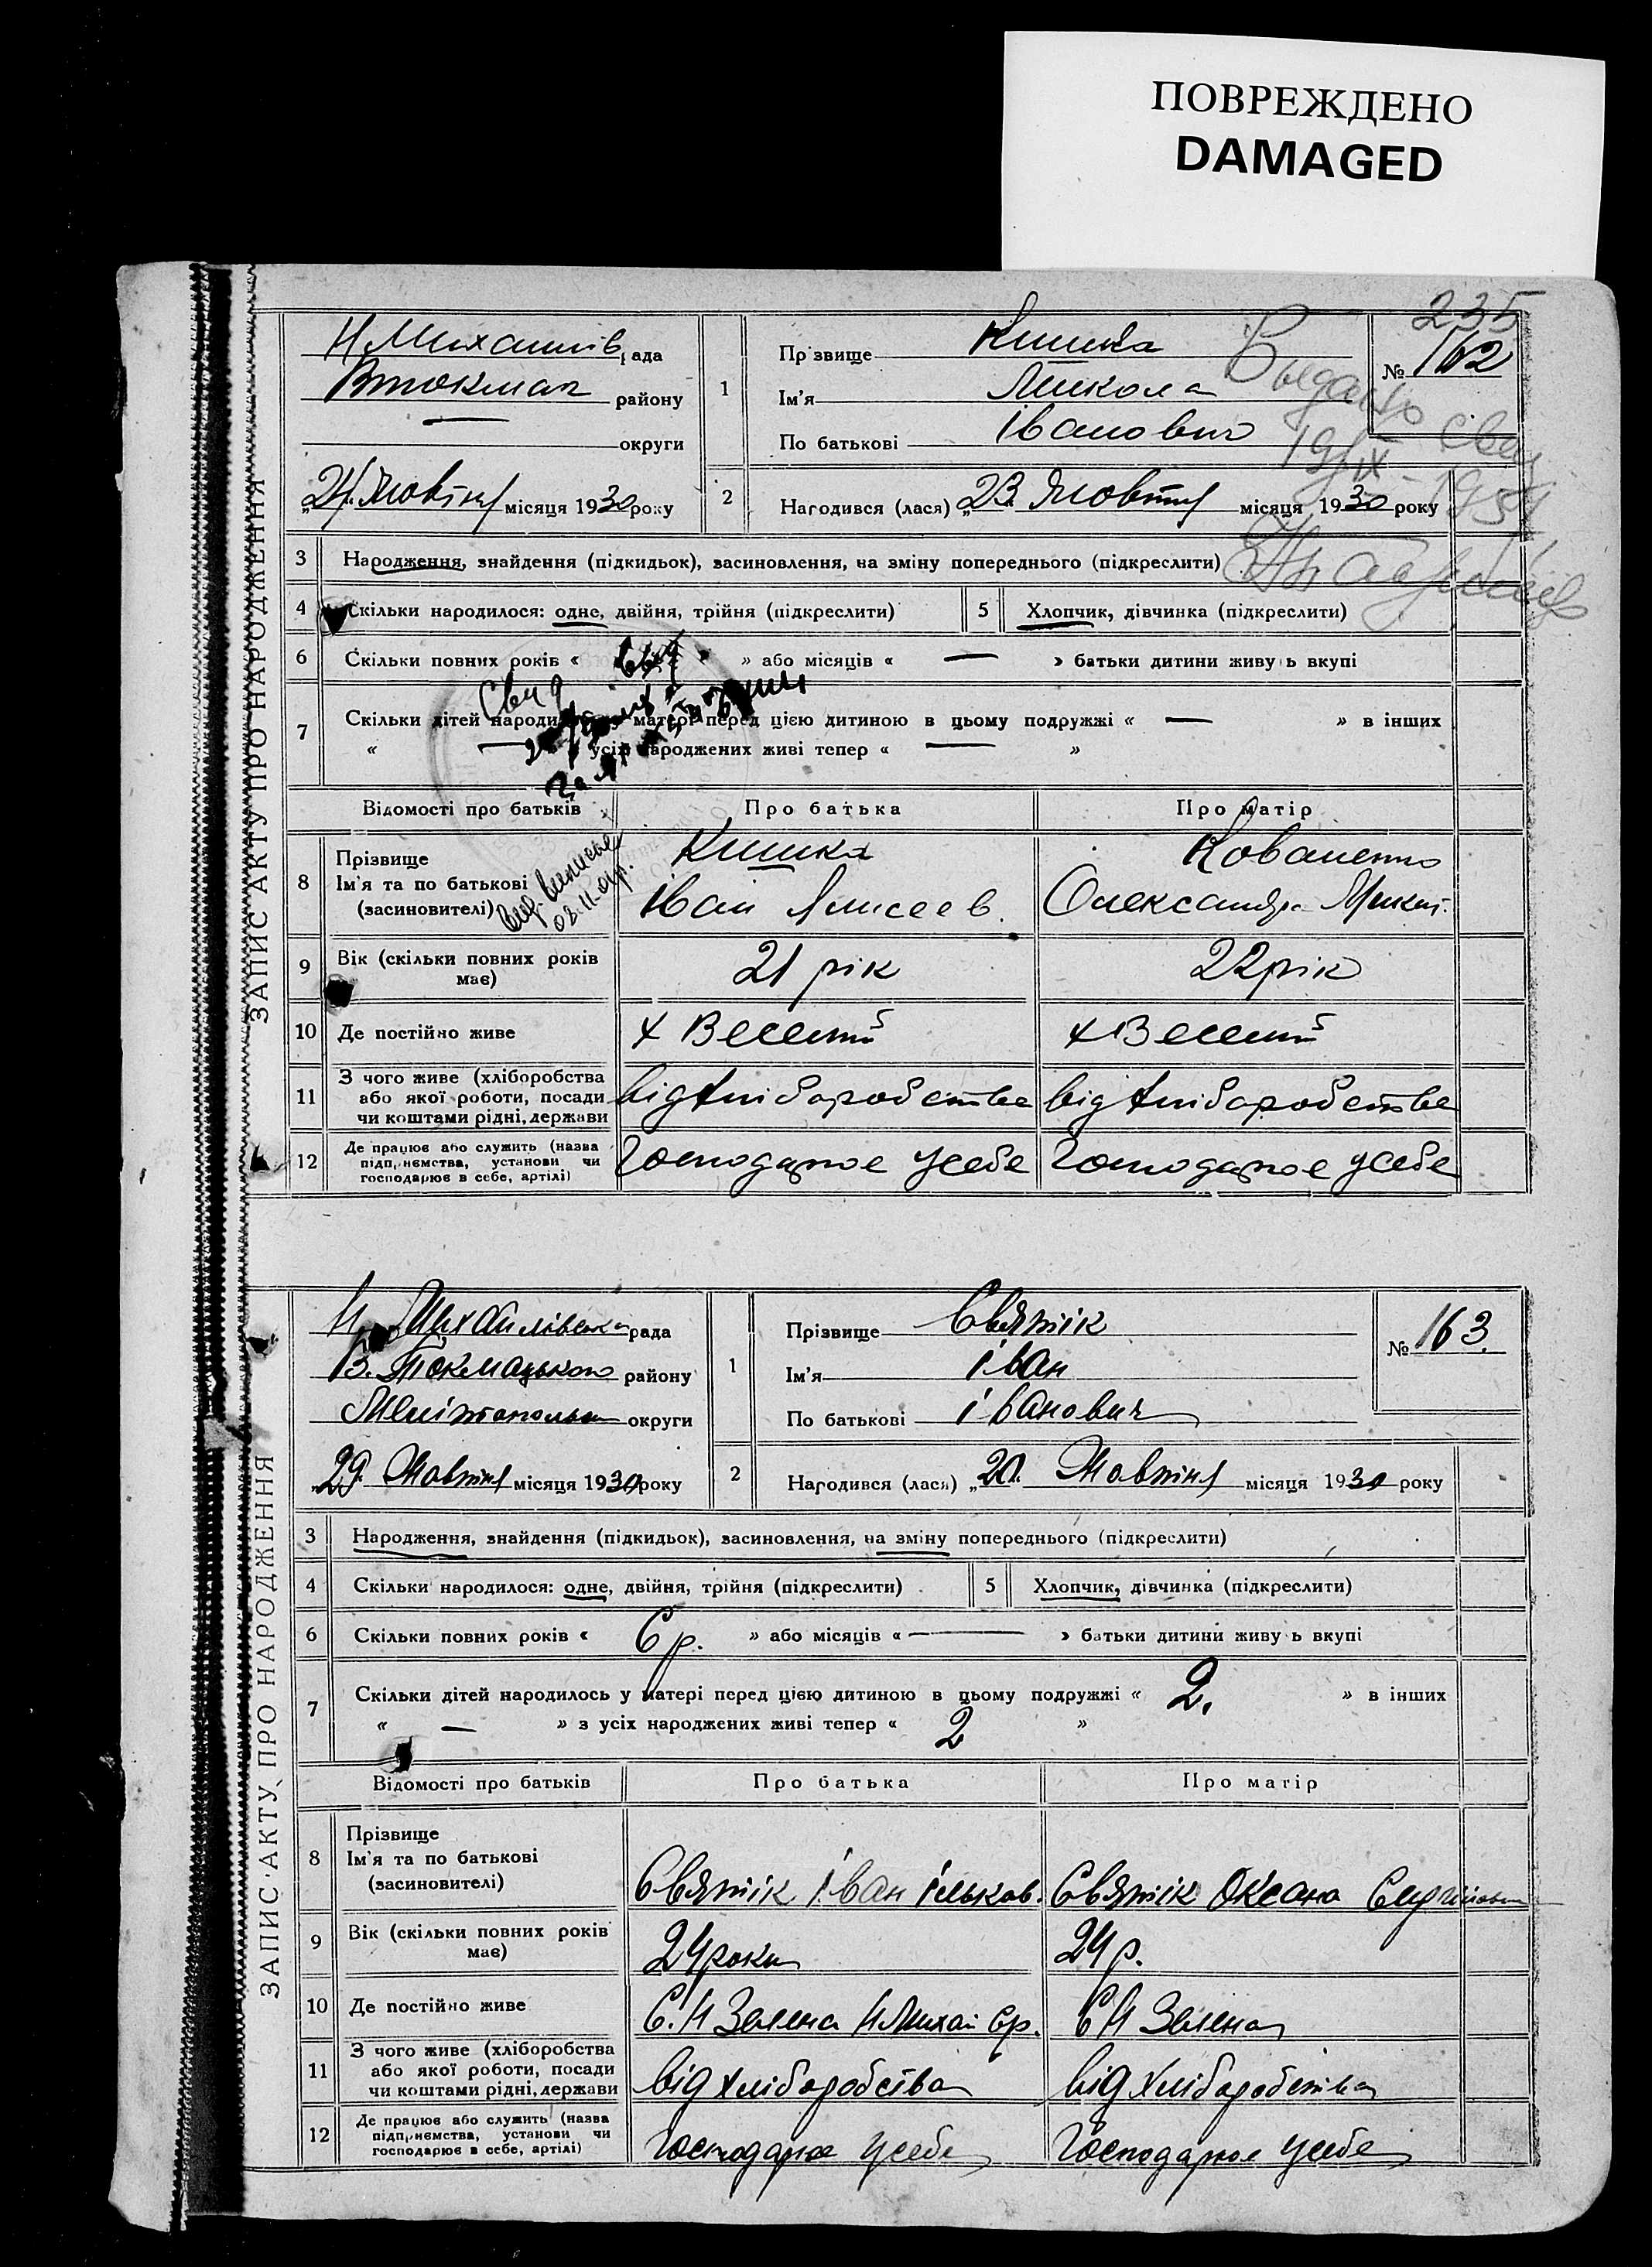 ПОВРЕЖДЕНО
DAMAGED
235
ЗАПИС АКТУ ПРО НАРОДЖЕННЯ
Н Михайлів рада
Втокмак району
— округи
„24. Жовтня місяця 1930 року
1
Прізвище Кишка
Ім'я Микола
По батькові Іванович
№ 162
Выдано
свид
19/IX - 1954
2 Народився (лася) „23. Жовтня місяця 1930 року
3 Народження, знайдення (підкидьок), засиновлення, на зміну попереднього (підкреслити)
4 Скільки народилося: одне, двійня, трійня (підкреслити)
5 Хлопчик, дівчинка (підкреслити)
6 Скільки повних років « » або місяців « — » батьки дитини живуть вкупі
Свид
7 Скільки дітей народилось у матері перед цією дитиною в цьому подружжі « — » в інших
« — » з усіх народжених живі тепер « — »
Відомості про батьків Про батька Про матір
08.11.
8 Прізвище
Ім'я та по батькові
(засиновителі)
Кишка
Іван Алисеев.
Коваленко
Олександра Микит.
9 Вік (скільки повних років має) 21 рік 22 рік
10 Де постійно живе х Веселий х Веселий
11 З чого живе (хліборобства
або якої роботи, посади
чи коштами рідні, держави
від хліборобства від хліборобства
12 Де працює або служить (назва
підприємства, установи чи
господарює в себе, артілі)
Господарює усебе Господарює усебе
ЗАПИС АКТУ ПРО НАРОДЖЕННЯ
Н. Михайлівська рада
В. Токмацького району
Мелітопольськ округи
„29. Жовтня місяця 1930 року
1
Прізвище Святік
Ім'я Іван
По батькові Іванович
№ 163.
2 Народився (лася) „20. Жовтня місяця 1930 року
3 Народження, знайдення (підкидьок), засиновлення, на зміну попереднього (підкреслити)
4 Скільки народилося: одне, двійня, трійня (підкреслити)
5 Хлопчик, дівчинка (підкреслити)
6 Скільки повних років « 6 р. » або місяців « — » батьки дитини живуть вкупі
7 Скільки дітей народилось у матері перед цією дитиною в цьому подружжі « 2. » в інших
« — » з усіх народжених живі тепер « 2 »
Відомості про батьків Про батька Про матір
8 Прізвище
Ім'я та по батькові
(засиновителі)
Святік Іван Ільков. Святік Оксана Сергіівна
9 Вік (скільки повних років має) 24 роки 24 р.
10 Де постійно живе С. Н Зелена Н Михай Ср. С Н Зелена
11 З чого живе (хліборобства
або якої роботи, посади
чи коштами рідні, держави
від хліборобства від хліборобства
12 Де працює або служить (назва
підприємства, установи чи
господарює в себе, артілі)
Господарює усебе Господарює усебе